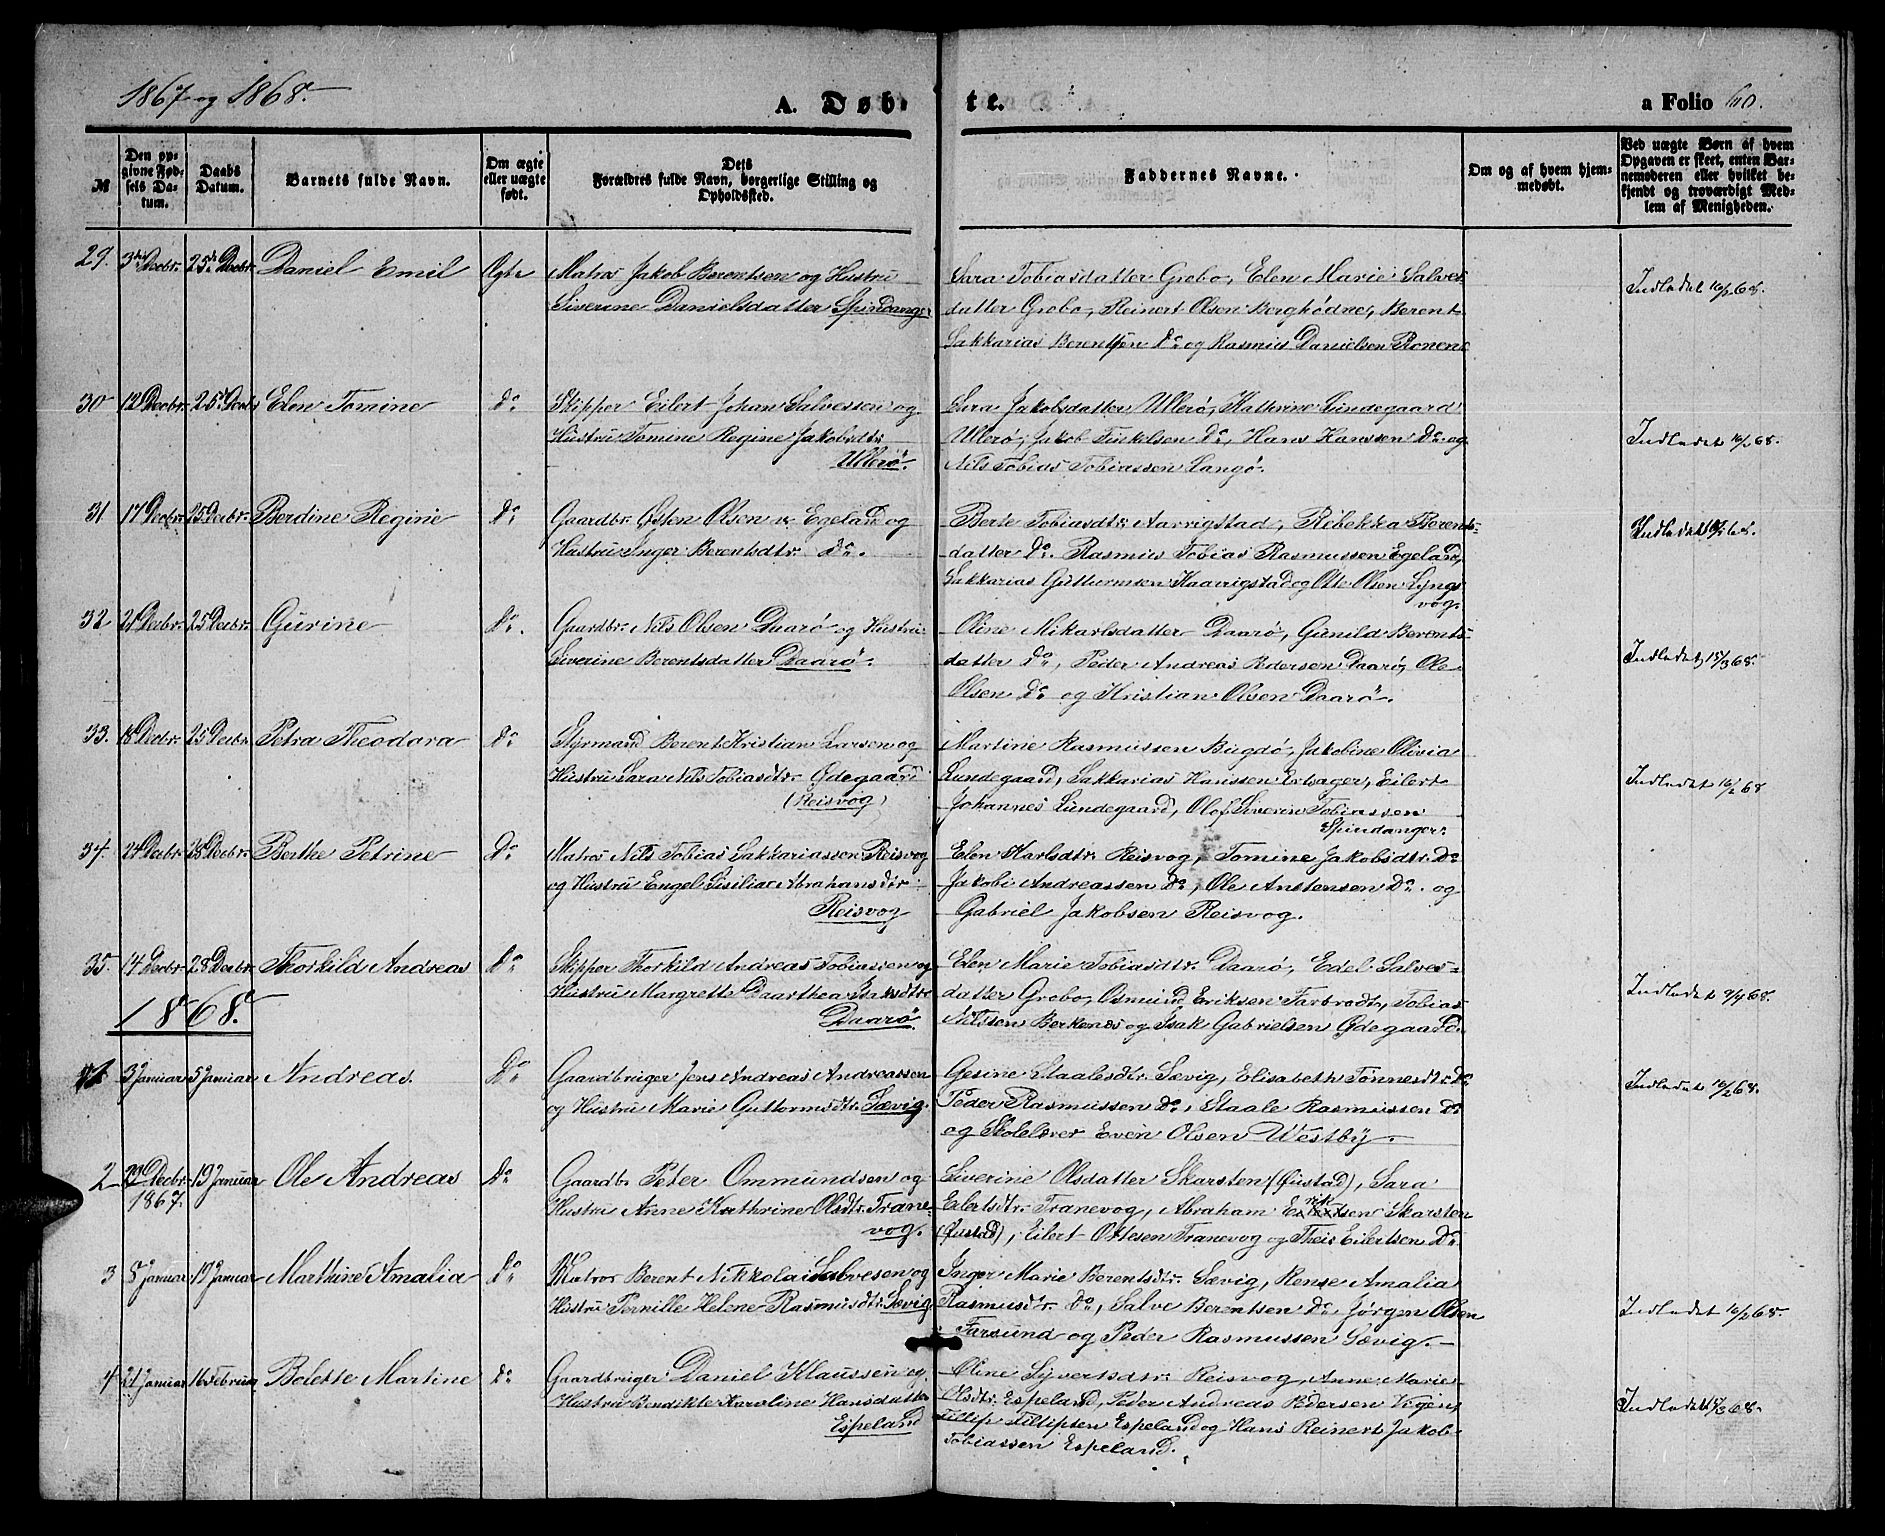 1867 og 1868.
A. Døbte.
a Folio 60.
№
Den opgivne Fødsels Datum.
Daabs Datum.
Barnets fulde Navn.
Om ægte eller uægte født.
Dets Forældres fulde Navn, borgerlige Stilling og Opholdssted.
Faddernes Navne.
Om og af hvem hjemmedøbt.
Ved uægte Børn af hvem Opgaven er skeet, enten Barnemoderen eller hvilket bekjendt og troværdigt Medlem af Menigheden.
29. 3die Decbr. 25de Decbr. Daniel Emil Ægte Matros Jakob Berentsen og Hustru
Siverine Danielsdatter Spindanger
Sara Tobiasdatter Grobo, Elen Marie Salves
datter Grobo, Reinert Olsen Bergkødne, Berent
Sakkarias Berentsen Do og Rasmus Danielsen Ronene
Indladet 16/2 68.
30 12 Decbr. 25 Decbr Elen Tomine Do Skipper Eilert Johan Salvessen og
Hustru Tomine Regine Jakobsdtr
Ullerø.
Sara Jakobsdatter Ullerø, Kathrine Lundegaard
Ullerø, Jakob Tinkelsen Do, Hans Hanssen Do og
Nils Tobias Tobiassen Langø.
Indladet 16/2 68.
31 17 Decbr. 25 Decbr. Berdine Regine Do Gaardbr. Østen Olsen v. Egeland og
Hustru Inger Berentsdtr. Do.
Berte Tobiasdtr. Aavrigstad, Rebekka Berents-
datter Do. Rasmus Tobias Rasmussen Egeland,
Sakkarias Guttormsen Haavrigstad og Ole Olsen Lyngs
vog.
Indladet 68.
32 21 Decbr. 25 Decbr. Gurine Do. Gaardbr. Nils Olsen Daarø og Hustru
Siverine Berentsdatter Daarø.
Oline Mikarlsdatter Daarø, Gunild Berents-
datter Do, Peder Andreas Pedersen Daarø, Ole
Olsen Do og Kristian Olsen Daarø.
Indladet 15/3 68.
33. 18 Decbr. 25 Decbr. Petra Theodora Do Styrmand Berent Kristian Larsen og
Hustru Sara Nils Tobiasdtr. Ødegaard
(Reisvog)
Martine Rasmussen Bugdø, Jakobine Olivia
Lundegaard, Sakkarias Hanssen Ertsager, Eilert
Johannes Lundegaard, Olof Siverin Tobiassen
Spindanger.
Indladet 16/2 68
34. 24 Decbr. 28 Decbr. Berthe Petrine Do Matros Nils Tobias Sakkariassen Reisvog
og Hustru Engel Sisilia Abrahamsdtr
Reisvog
Elen Karlsdtr. Reisvog, Tomine Jakobsdtr. Do
Jakob Andreassen Do, Ole Anstensen Do. og
Gabriel Jakobsen Reisvog.
35. 14 Decbr. 28 Decbr. Thorkild Andreas Do Skipper Thorkild Andreas Tobiassen og
Hustru Margrette Daarthea Isaksdtr.
Daarø
Elen Marie Tobiasdtr. Daarø, Edel Salves-
datter Grobo, Osmund Eriksen Farbrodt, Tobias
Nilssen Berkenes og Isak Gabrielsen Ødegaard.
Indladet 68.
1868.
1 3 Januar 5 Januar Andreas. Do Gaardbruger Jens Andreas Andreassen
og Hustru Marie Guttormsdtr. Sævig.
Gesine Staalesdtr. Sævig, Elisabeth Tønnesdtr. Do
Peder Rasmussen Do, Staale Rasmussen Do
og Skolelærer Even Olsen Westby.
Indladet 16/2 68.
2 29 Decbr. 1867. 19 Januar Ole Andreas Do Gaardb. Peter Ommundsen og
Hustru Anne Kathrine Olsdtr. Trane-
vog.
Siverine Olsdatter Skarsten (Øustad), Sara
Eilertsdtr. Tranevog, Abraham Eriksen Skarsten
(Øustad), Eilert Ottesen Tranevog og Theis Eilertsen Do.
3 8 Januar 19 Januar Marthine Amalia Do Matros Berent Nikkolai Salvesen og
Hustru Pernille Helene Rasmusdtr. Sævig
Inger Marie Berentsdtr. Sævig, Rense Amalia
Rasmusdtr. Do, Salve Berentsen Do, Jørgen Olsen
Farsund og Peder Rasmussen Sævig.
Indladet 16/2 68.
4 21 Januar 16 Februar Bolette Martine Do Gaardbruger Daniel Klaussen og
Hustru Bendikte Karoline Hansdatter
Espeland
Oline Syvertsdtr. Reisvog, Anne Marie
Olsdtr. Espeland, Peder Andreas Pedersen Vigen,
Fillip Fillipsen Espeland og Hans Reinert Jakob
Tobiassen Espeland.
Indladet 68.